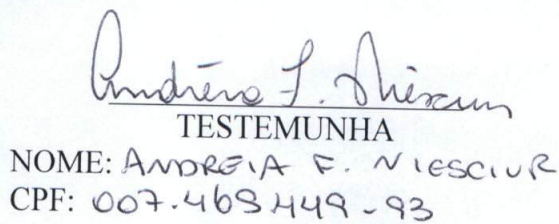 Andréia F. Niesciur
TESTEMUNHA
NOME: ANDREIA F. NIESCIUR
CPF: 007.469449-93